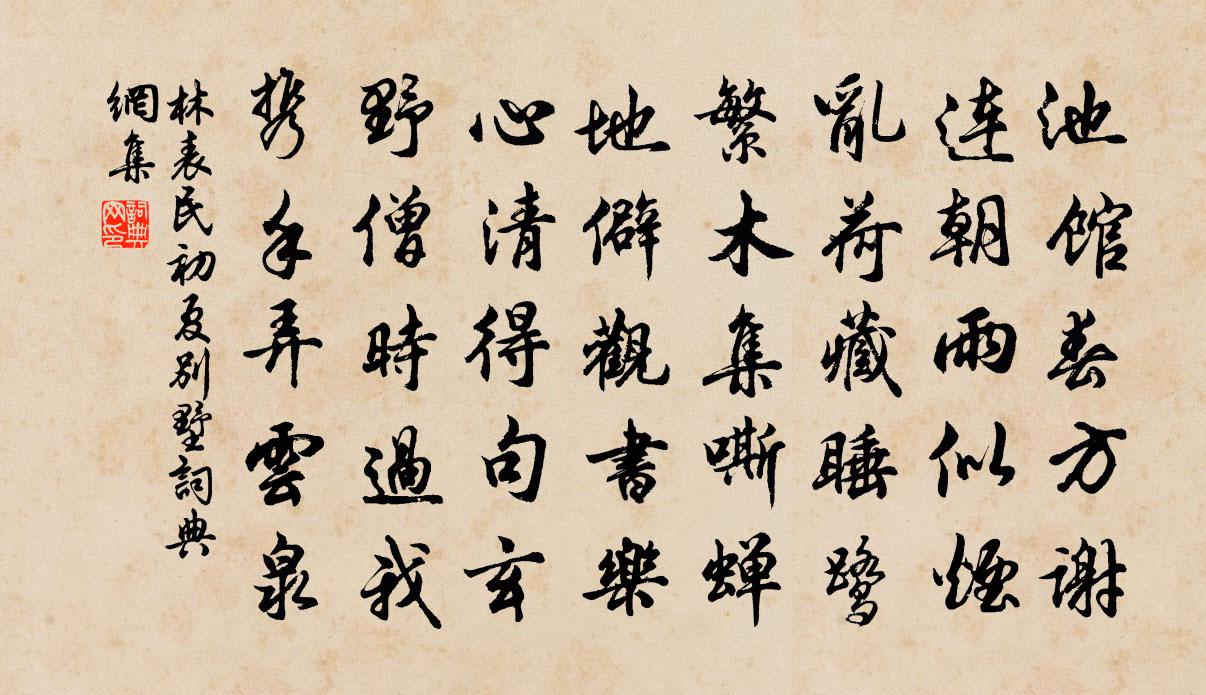 池館春方謝
連朝雨似煙
亂荷藏睡鷺
繁木集嘶蝉
地僻觀書樂
心清得句玄
野僧時過我
携手弄雲泉
林表民初夏别墅詞典
網集
詞典網印